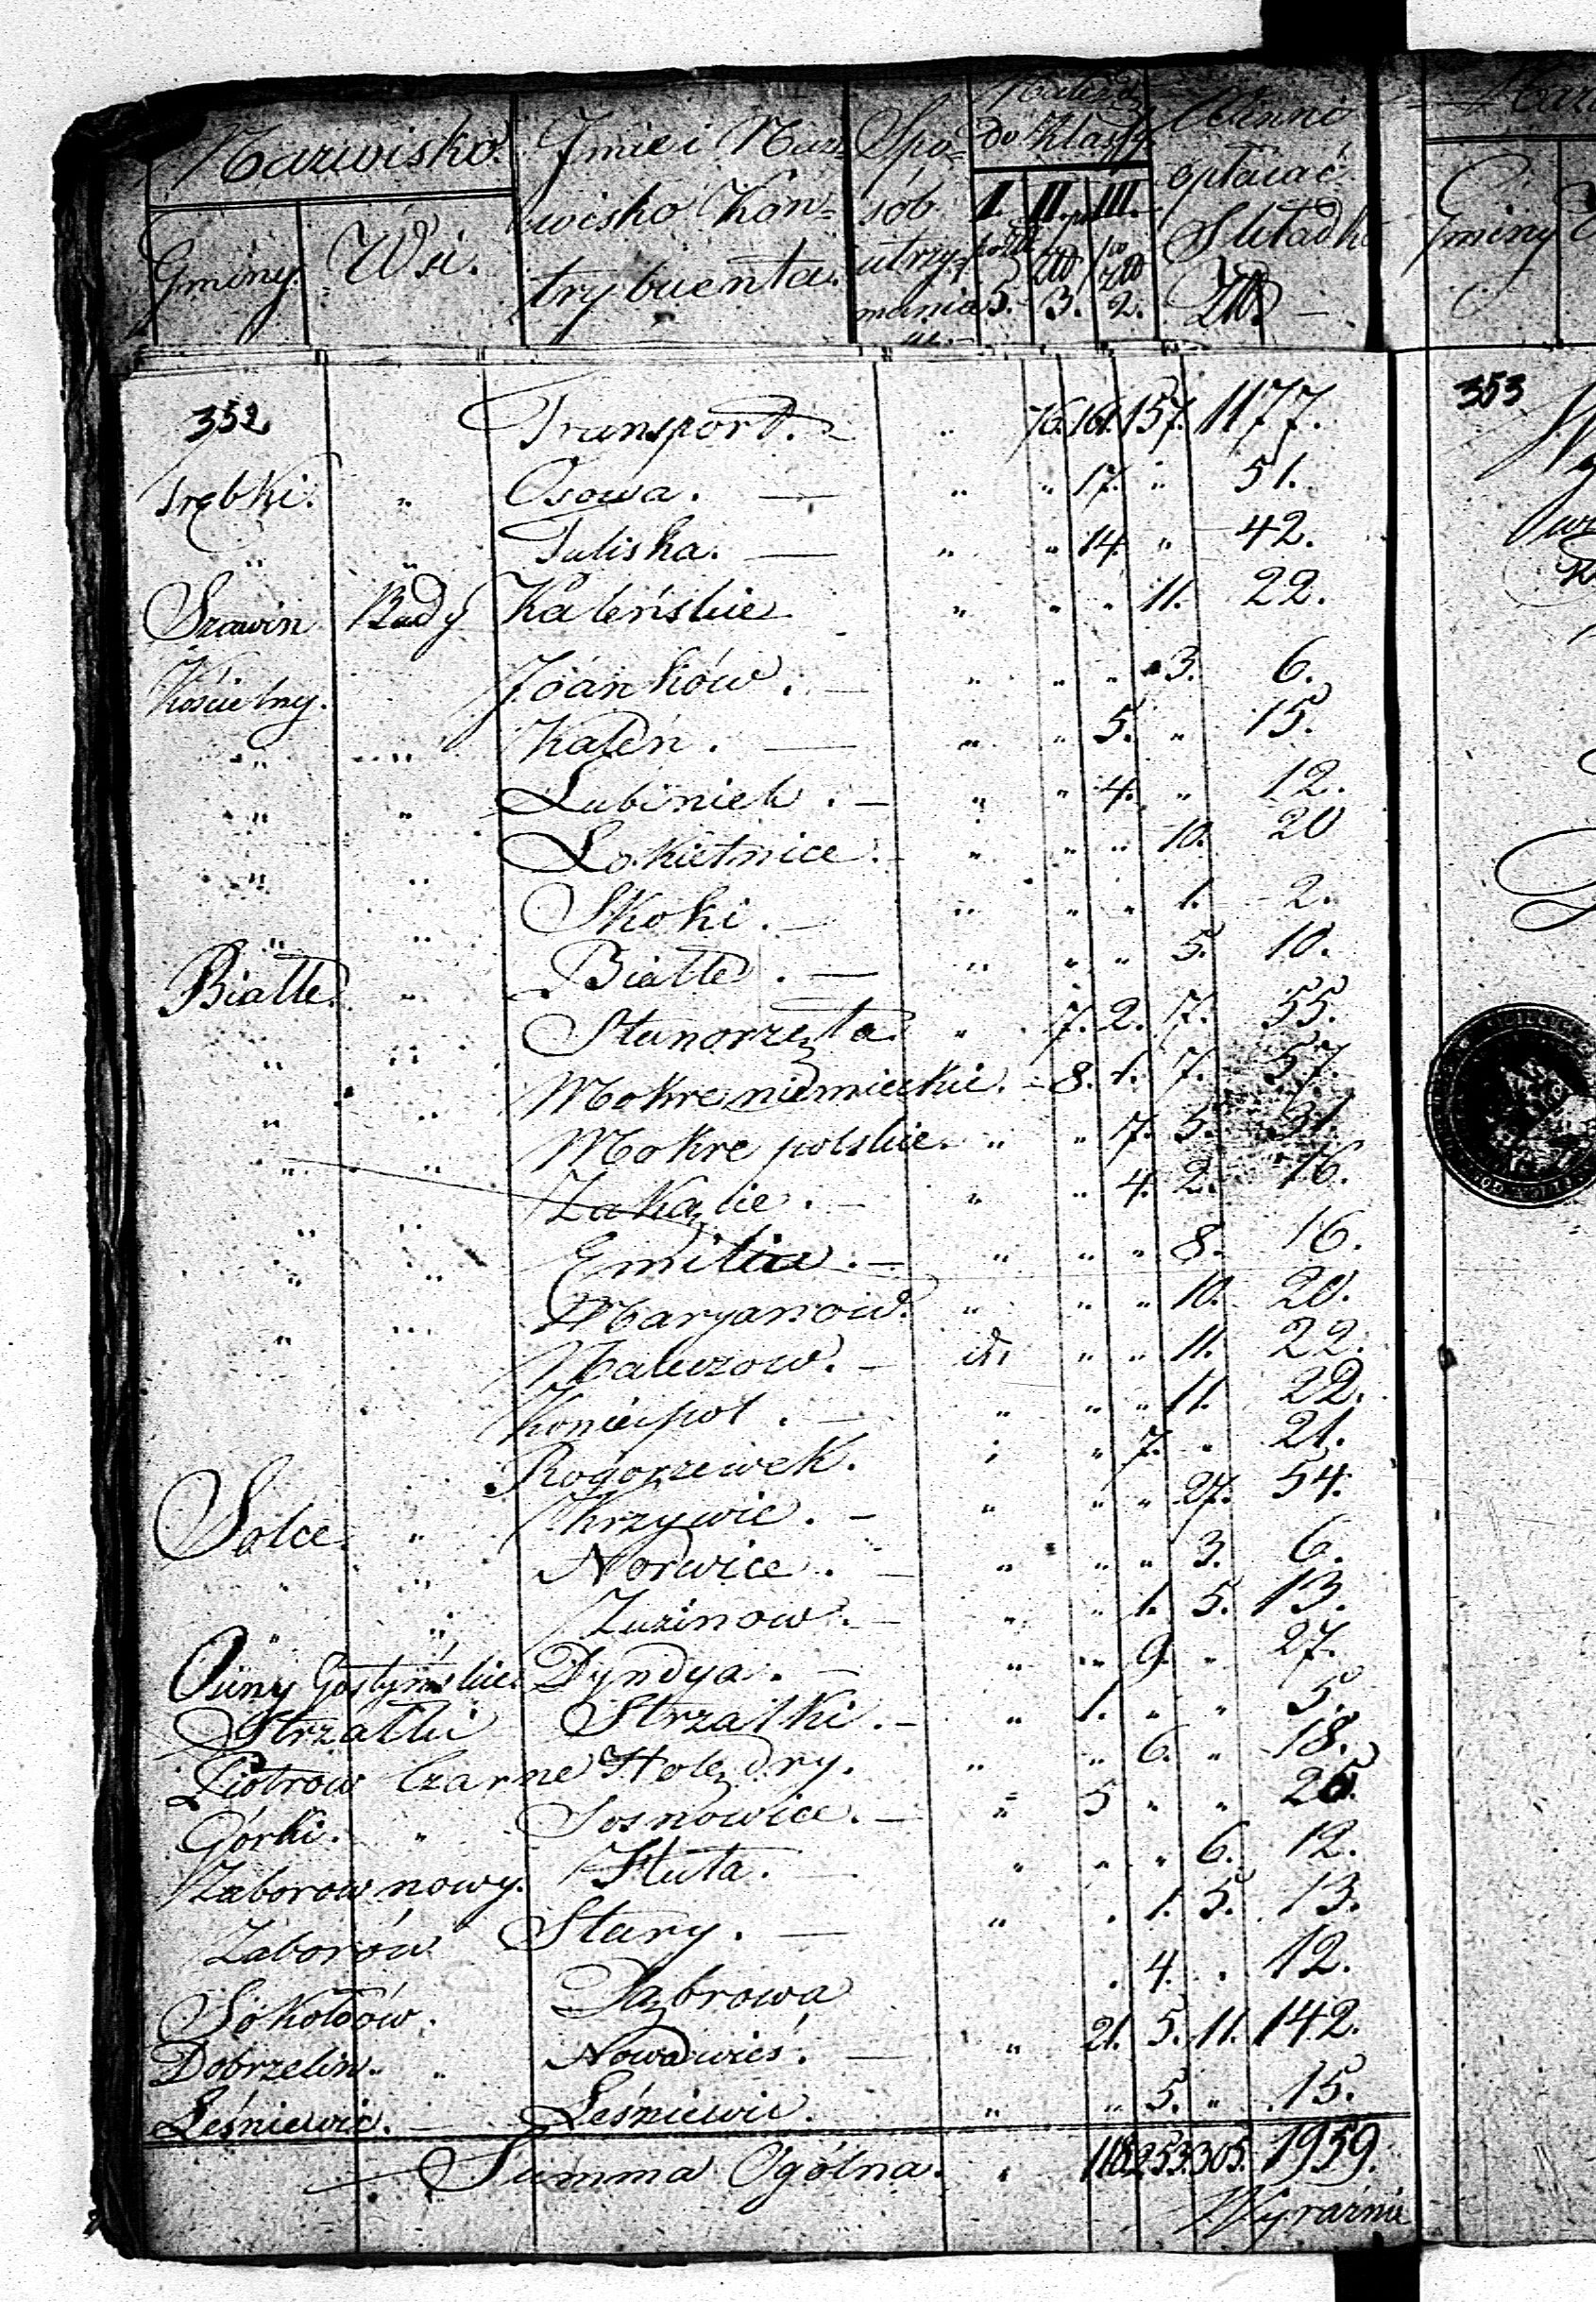 Nazwisko
Gminy. Wsi.
Jmie i Naz=
wisko Kon=
trybuenta.
Spo=
sób
utrzy=
mania
się.
Należą
do Klassy.
I. II. III.
po złł po złł
5. 3. 2.
Winni
opłacać
Składki
Złł.
Gminy
352 Transport. " 76. 161. 157. 1177.
Trębki. " Osowa. — " " 17. " 51.
" " Tuliska. — " " 14. " 42.
Szawin Budy Kaleńskie " " " 11. 22.
Kościelny. Joanków. — " " " 3. 6.
" " Kaleń. — " " 5. " 15.
" " Lubiniek. — " " 4. " 12.
" " Lokietnice. " " " 10. 20
" " Skoki. — " " " 1. 2.
Białte. " Białte. — " " " 5. 10.
" " Stanorzęta. " 7. 2. 7. 55.
" " Mokre niemieckie. - 8. 1. 7. 57.
" " Mokre polskie. " " 7. 5. 31.
" " Zakącie. — " " 4. 2. 16.
" " Emilia. — " " " 8. 16.
" " Maryanow. " " " 10. 20.
Maluzow. — " " 11. 22.
Koniecpol. — " " " 11. 22.
Rogorzewek. " " 7. " 21.
Solce. " Krzywie. — " " " 27. 54.
" " Norwice. — " " " 3. 6.
" " Zuzinow. — " " 1. 5. 13.
Osiny Gostyńskie. Dyndya. — " " 9. " 27.
Strzałki Strzałki. — " 1. " " 5.
Piotrow Czarne Holędry. " " 6. " 18.
Górki. " Sosnowice. — " 5 " " 25.
Zaborow nowy. Huta. — " " " 6. 12.
Zaborów Stary. — " . 1. 5. 13.
Sokołów. Dąbrowa . 4. . 12.
Dobrzelin. " Nowawieś. — " 21. 5. 11. 142.
Leśniewic. — Leśniewic. " " 5. " 15.
Summa Ogólna. " 118. 253. 305. 1959.
Wyraźnie
353